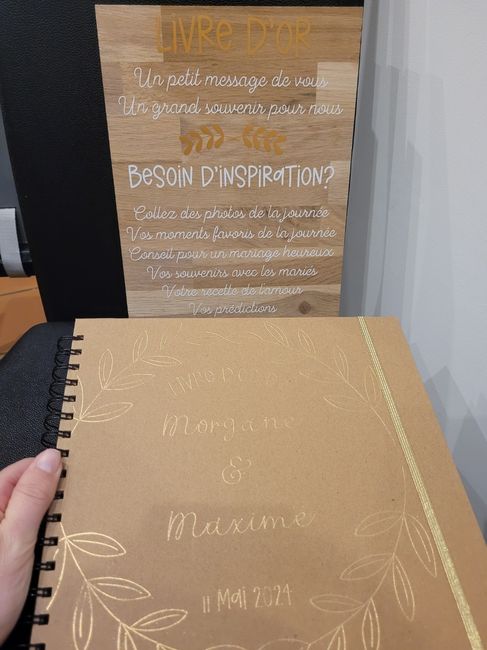 LIVRE D'OR
Un petit message de vous
Un grand souvenir pour nous
BESOIN D'INSPIRATION?
Collez des photos de la journée
Vos moments favoris de la journée
Conseil pour un mariage heureux
Vos souvenirs avec les mariés
Votre recette de l'amour
Vos prédictions
LIVRE D'OR
Morgane
&
Maxime
11 Mai 2024